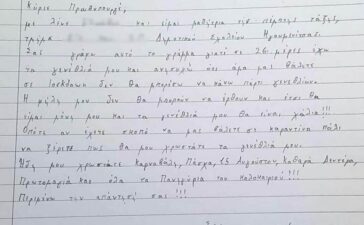 Κύριε Πρωθυπουργέ,
με λένε και είμαι μαθήτρια της πέμπτης τάξης,
τμήμα Δημοτικού Σχολείου Ηγουμενίτσας.
Σας γράφω αυτό το γράμμα γιατί σε 26 μέρες έχω
τα γενέθλιά μου και ανησυχώ ότι άμα μας βάλετε
σε lockdown δεν θα μπορέσω να κάνω πάρτι γενεθλίων.
Η μου δεν θα μπορούν να έρθουν και έτσι θα
είμαι μόνη μου και τα γενέθλιά μου θα είναι χάλια!!!
Οπότε αν έχετε σκοπό να μας βάλετε σε καραντίνα πάλι
να ξέρετε πως θα μου χρωστάτε τα γενέθλιά μου.
Ήδη μου χρωστάτε Καρναβάλι, Πάσχα, 15 Αύγουστο, Καθαρά Δευτέρα,
Πρωτομαγιά και όλα τα Πανηγύρια του καλοκαιριού!!!
Περιμένω την απάντησή σας!!!